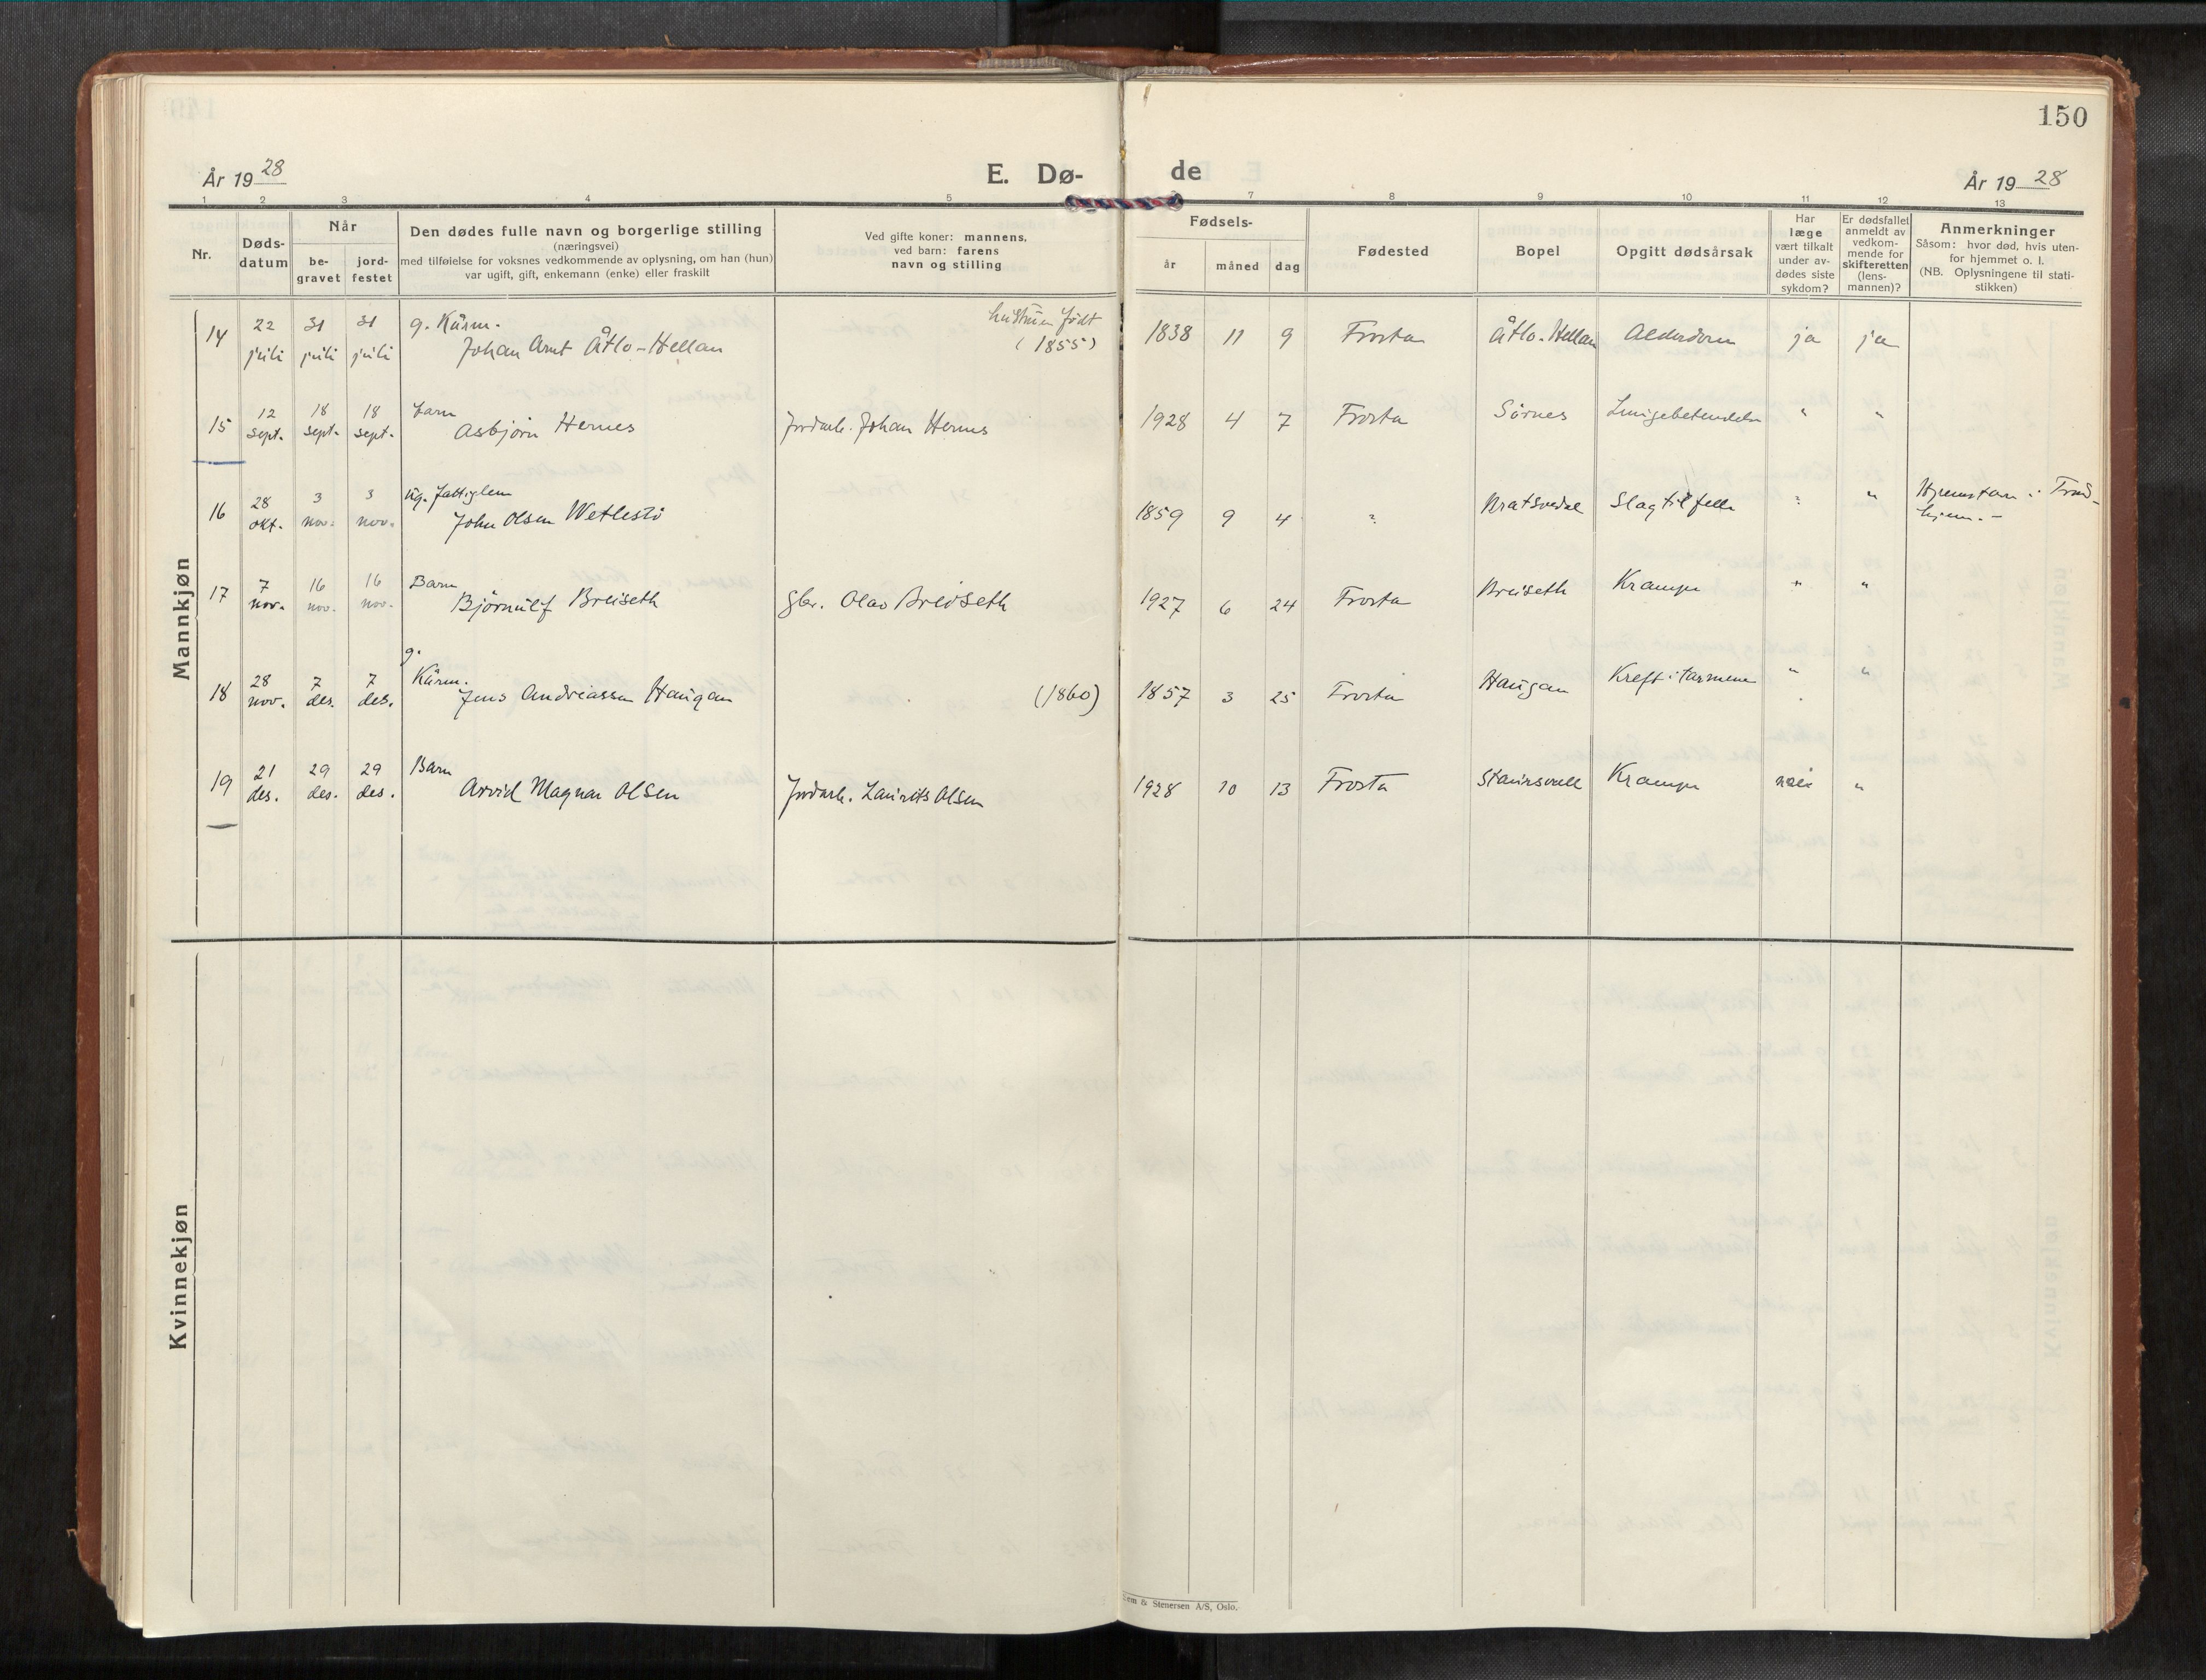 150
År 1928
E. Dø-
de
År 1928
1 2 3 4 5 7 8 9 10 11 12 13
Nr.
Døds-
datum
Når
be-
gravet
jord-
festet
Den dødes fulle navn og borgerlige stilling
(næringsvei)
med tilføielse for voksnes vedkommende av oplysning, om han (hun)
var ugift, gift, enkemann (enke) eller fraskilt
Ved gifte koner: mannens,
ved barn: farens
navn og stilling
Fødsels-
år
måned
dag
Fødested
Bopel
Opgitt dødsårsak
Har
læge
vært tilkalt
under av-
dødes siste
sykdom?
Er dødsfallet
anmeldt av
vedkom-
mende for
skifteretten
(lens-
mannen)?
Anmerkninger
Såsom: hvor død, hvis uten-
for hjemmet o. l.
(NB. Oplysningene til stati-
stikken)
Mannkjøn
14 22 juli 31 juli 31 juli g. Kårm.
Johan Arnt Åtlo-Hellan
hustruen født
(1855)
1838 11 9 Frosta Åtlo-Hellan Alderdom ja ja
15 12 sept. 18 sept. 18 sept. barn
Asbjørn Hernes
Jordarb. Johan Hernes
1928 4 7 Frosta Sørnes Lungebetendelse " "
16 28 okt. 3 nov. 3 nov. ug. fattiglem
John Olsen Wetlestø
1859 9 4 " Slagtilfelle " "
17 7 nov. 16 nov. 16 nov. Barn
Bjørnulf Breiseth
gbr. Olav Breiseth
1927 6 24 Frosta Breiseth Krampe " "
18 28 nov. 7 des. 7 des. g.
Kårm.
Jens Andreassen Haugan
(1860)
1857 3 25 Frosta Haugan Kreft i tarmene " "
19 21 des. 29 des. 29 des. Barn
Arvid Magnar Olsen
Jordarb. Laurits Olsen
1928 10 13 Frosta Krampe nei "
Kvinnekjøn
& Stenersen A/S, Oslo.